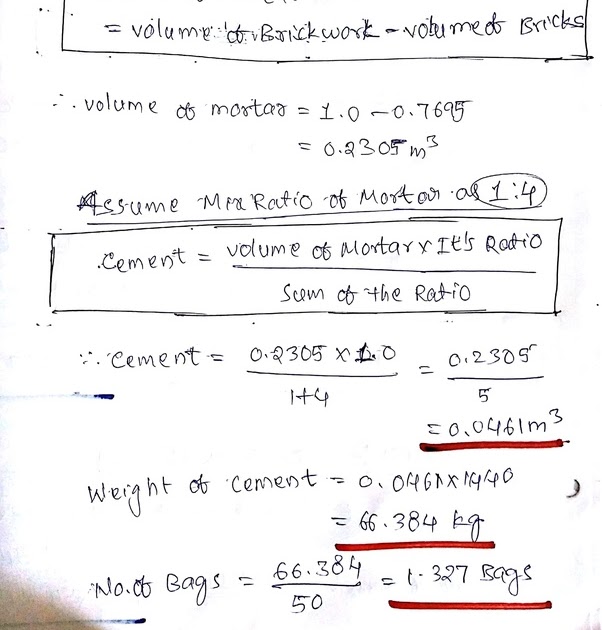 = volume of Brickwork - volume of Bricks
∴ volume of mortar = 1.0 - 0.7695
= 0.2305 m³
Assume Mix Ratio of Mortar as 1:4
Cement = volume of Mortar x It's Ratio
Sum of the Ratio
∵ Cement = 0.2305 x 1.0 = 0.2305
1+4 5
= 0.0461 m³
Weight of cement = 0.0461 x 1440
= 66.384 kg
No. of Bags = 66.384 = 1.327 Bags
50